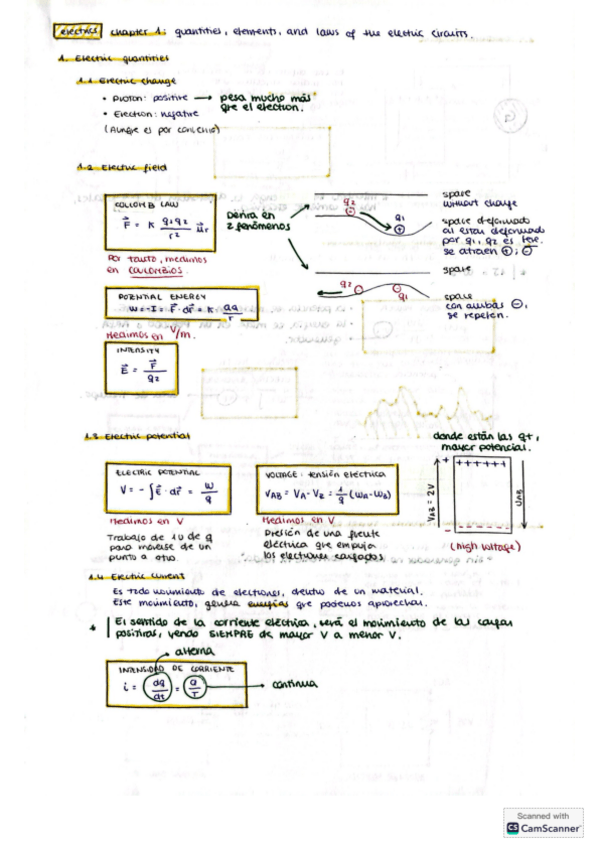 electrics chapter 1: quantities, elements, and laws of the electric circuits.
1. Electric quantities
1.1 Electric change
• Proton: positive → pesa mucho más que el electron.
• Electron: negative
(Aunque es por convenio)
1.2 Electric field
COULOMB LAW
F = K q1 q2 / r² ur
Por tanto, medimos
en COULOMBIOS.
Deriva en
2 fenómenos
q2 ⊖
q1 ⊕
space
without charge
space deformado
al estar deformado
por q1, q2 es
se atraen ⊕ i ⊖
space
q2
q1
space
con ambas ⊖,
se repelen.
POTENTIAL ENERGY
Medimos en V/m.
INTENSITY
E = F / q2
1.3 Electric potential
donde están las q+,
mayor potencial.
ELECTRIC POTENTIAL
V = - ∫ E · dr = W / q
Medimos en V
Trabajo de 1U de q
para moverse de un
punto a otro.
VOLTAGE: tensión eléctrica
VAB = VA - VB = 1/q (WA - WB)
Medimos en V
Presión de una fuente
eléctrica que empuja
los electrones cargados.
+ ++++++
VAB = 2V
UAB
(high voltage)
1.4 Electric current
Es todo movimiento de electrones, dentro de un material.
Este movimiento, genera energías que podemos aprovechar.
* El sentido de la corriente eléctrica, será el movimiento de las cargas
positivas, yendo SIEMPRE de mayor V a menor V.
alterna
INTENSIDAD DE CORRIENTE
i = dq/dt = Q/T → continua
Scanned with
CS CamScanner